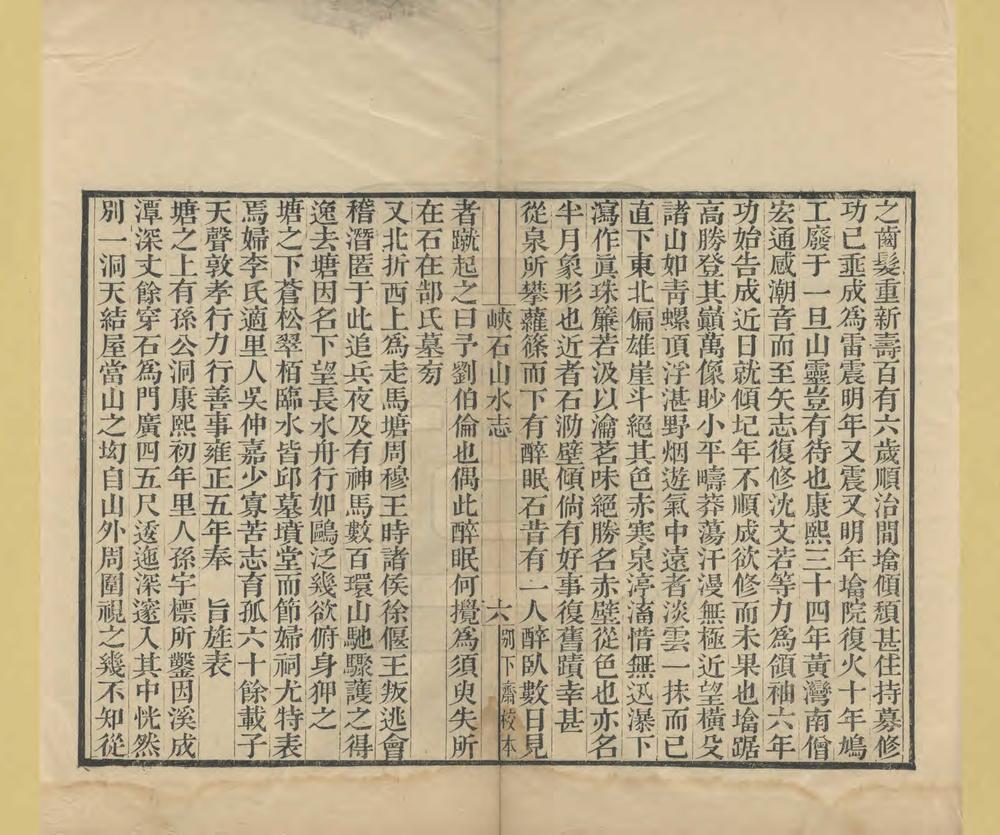 之齒髮重新壽百有六歲順治間墖傾頽甚住持募修
功已垂成爲雷震明年又震又明年墖院復火十年鳩
工廢于一旦山靈豈有待也康熙三十四年黃灣南僧
宏通感潮音而至矢志復修沈文若等力爲領袖六年
功始告成近日就傾圮年不順成欲修而未果也墖踞
高勝登其巓萬像眇小平疇莽蕩汗漫無極近望橫殳
諸山如靑螺頂浮湛野烟遊氣中遠者淡雲一抹而已
直下東北偏雄崖斗絕其色赤寒泉渟滀惜無迅瀑下
瀉作眞珠簾若汲以瀹茗味絕勝名赤壁從色也亦名
半月象形也近者石泐壁傾倘有好事復舊蹟幸甚
從泉所攀蘿篠而下有醉眠石昔有一人醉臥數日見
峽石山水志
六
別下齋校本
者蹴起之曰予劉伯倫也偶此醉眠何攪爲須臾失所
在石在郜氏墓旁
又北折西上爲走馬塘周穆王時諸侯徐偃王叛逃會
稽潛匿于此追兵夜及有神馬數百環山馳驟護之得
逸去塘因名下望長水舟行如鷗泛幾欲俯身狎之
塘之下蒼松翠栢臨水皆邱墓墳堂而節婦祠尤特表
焉婦李氏適里人吳仲嘉少寡苦志育孤六十餘載子
天聲敦孝行力行善事雍正五年奉　旨旌表
塘之上有孫公洞康熙初年里人孫宇標所鑿因溪成
潭深丈餘穿石爲門廣四五尺逶迤深邃入其中恍然
別一洞天結屋當山之坳自山外周圍視之幾不知從